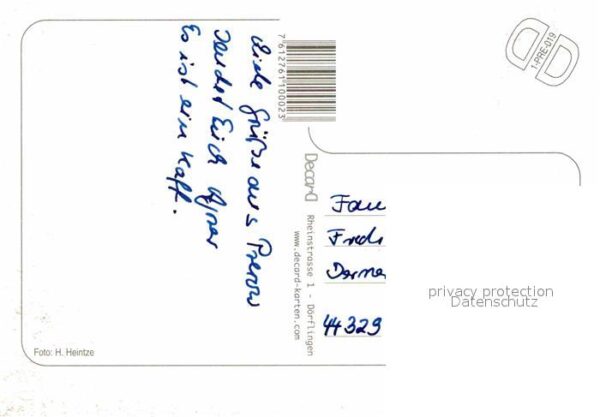 Viele Grüße aus Prerow
sendet Euch
Es ist ein Kaff.
7 612761 100023
Decard
Rheinstrasse 1 - Dörflingen
www.decard-karten.com
1-PRE-019
44329
privacy protection
Datenschutz
Foto: H. Heintze